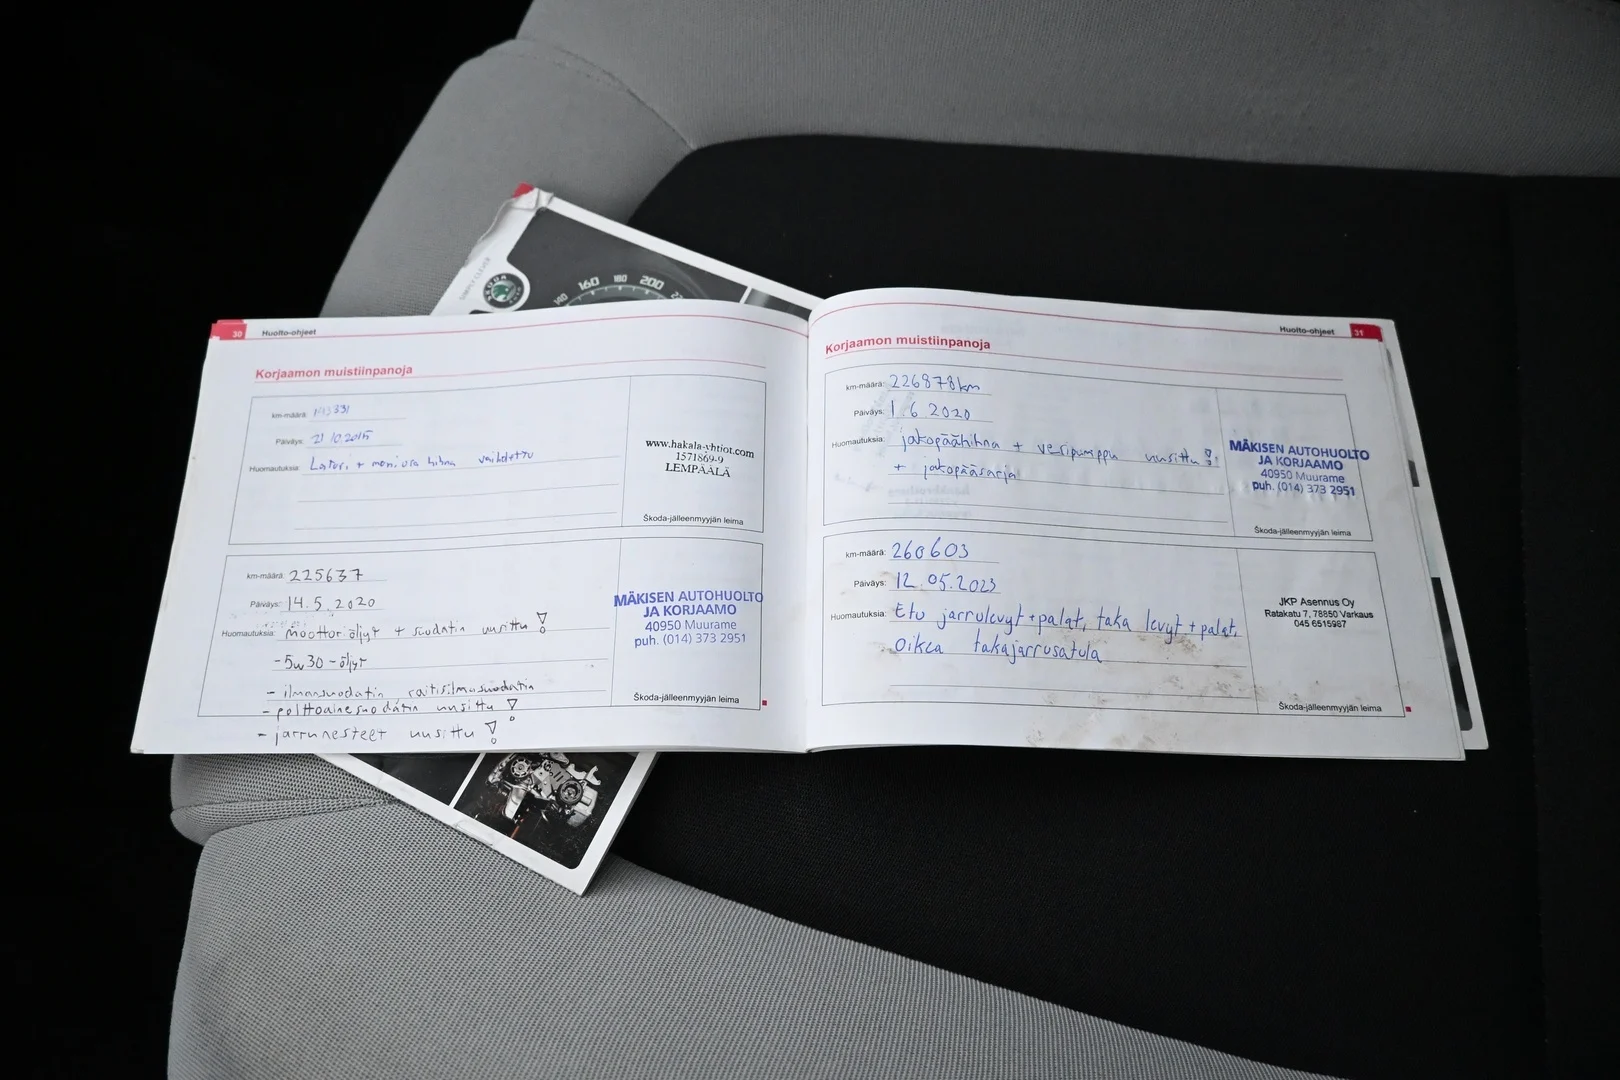 SIMPLY CLEVER
SKODA
140 160 180 200
30 Huolto-ohjeet
Korjaamon muistiinpanoja
km-määrä: 193331
Päiväys: 21 10.2015
Huomautuksia: Laturi + moniura hihna vaihdettu
www.hakala-yhtiot.com
1571869-9
LEMPÄÄLÄ
Škoda-jälleenmyyjän leima
km-määrä: 225637
Päiväys: 14.5.2020
Huomautuksia: moottoriöljyt + suodatin uusittu!
-5w30-öljyt
- ilmansuodatin, raitisilmasuodatin
- polttoainesuodatin uusittu!
- jarrunesteet uusittu!
MÄKISEN AUTOHUOLTO
JA KORJAAMO
40950 Muurame
puh. (014) 373 2951
Škoda-jälleenmyyjän leima
Huolto-ohjeet 31
Korjaamon muistiinpanoja
km-määrä: 226878km
Päiväys: 1.6.2020
Huomautuksia: jakopäähihna + vesipumppu uusittu!
+ jakopääsarja
MÄKISEN AUTOHUOLTO
JA KORJAAMO
40950 Muurame
puh. (014) 373 2951
Škoda-jälleenmyyjän leima
km-määrä: 260603
Päiväys: 12.05.2023
Huomautuksia: Etu jarrulevyt+palat, taka levyt+palat,
Oikea takajarrusatula
JKP Asennus Oy
Ratakatu 7, 78850 Varkaus
045 6515987
Škoda-jälleenmyyjän leima